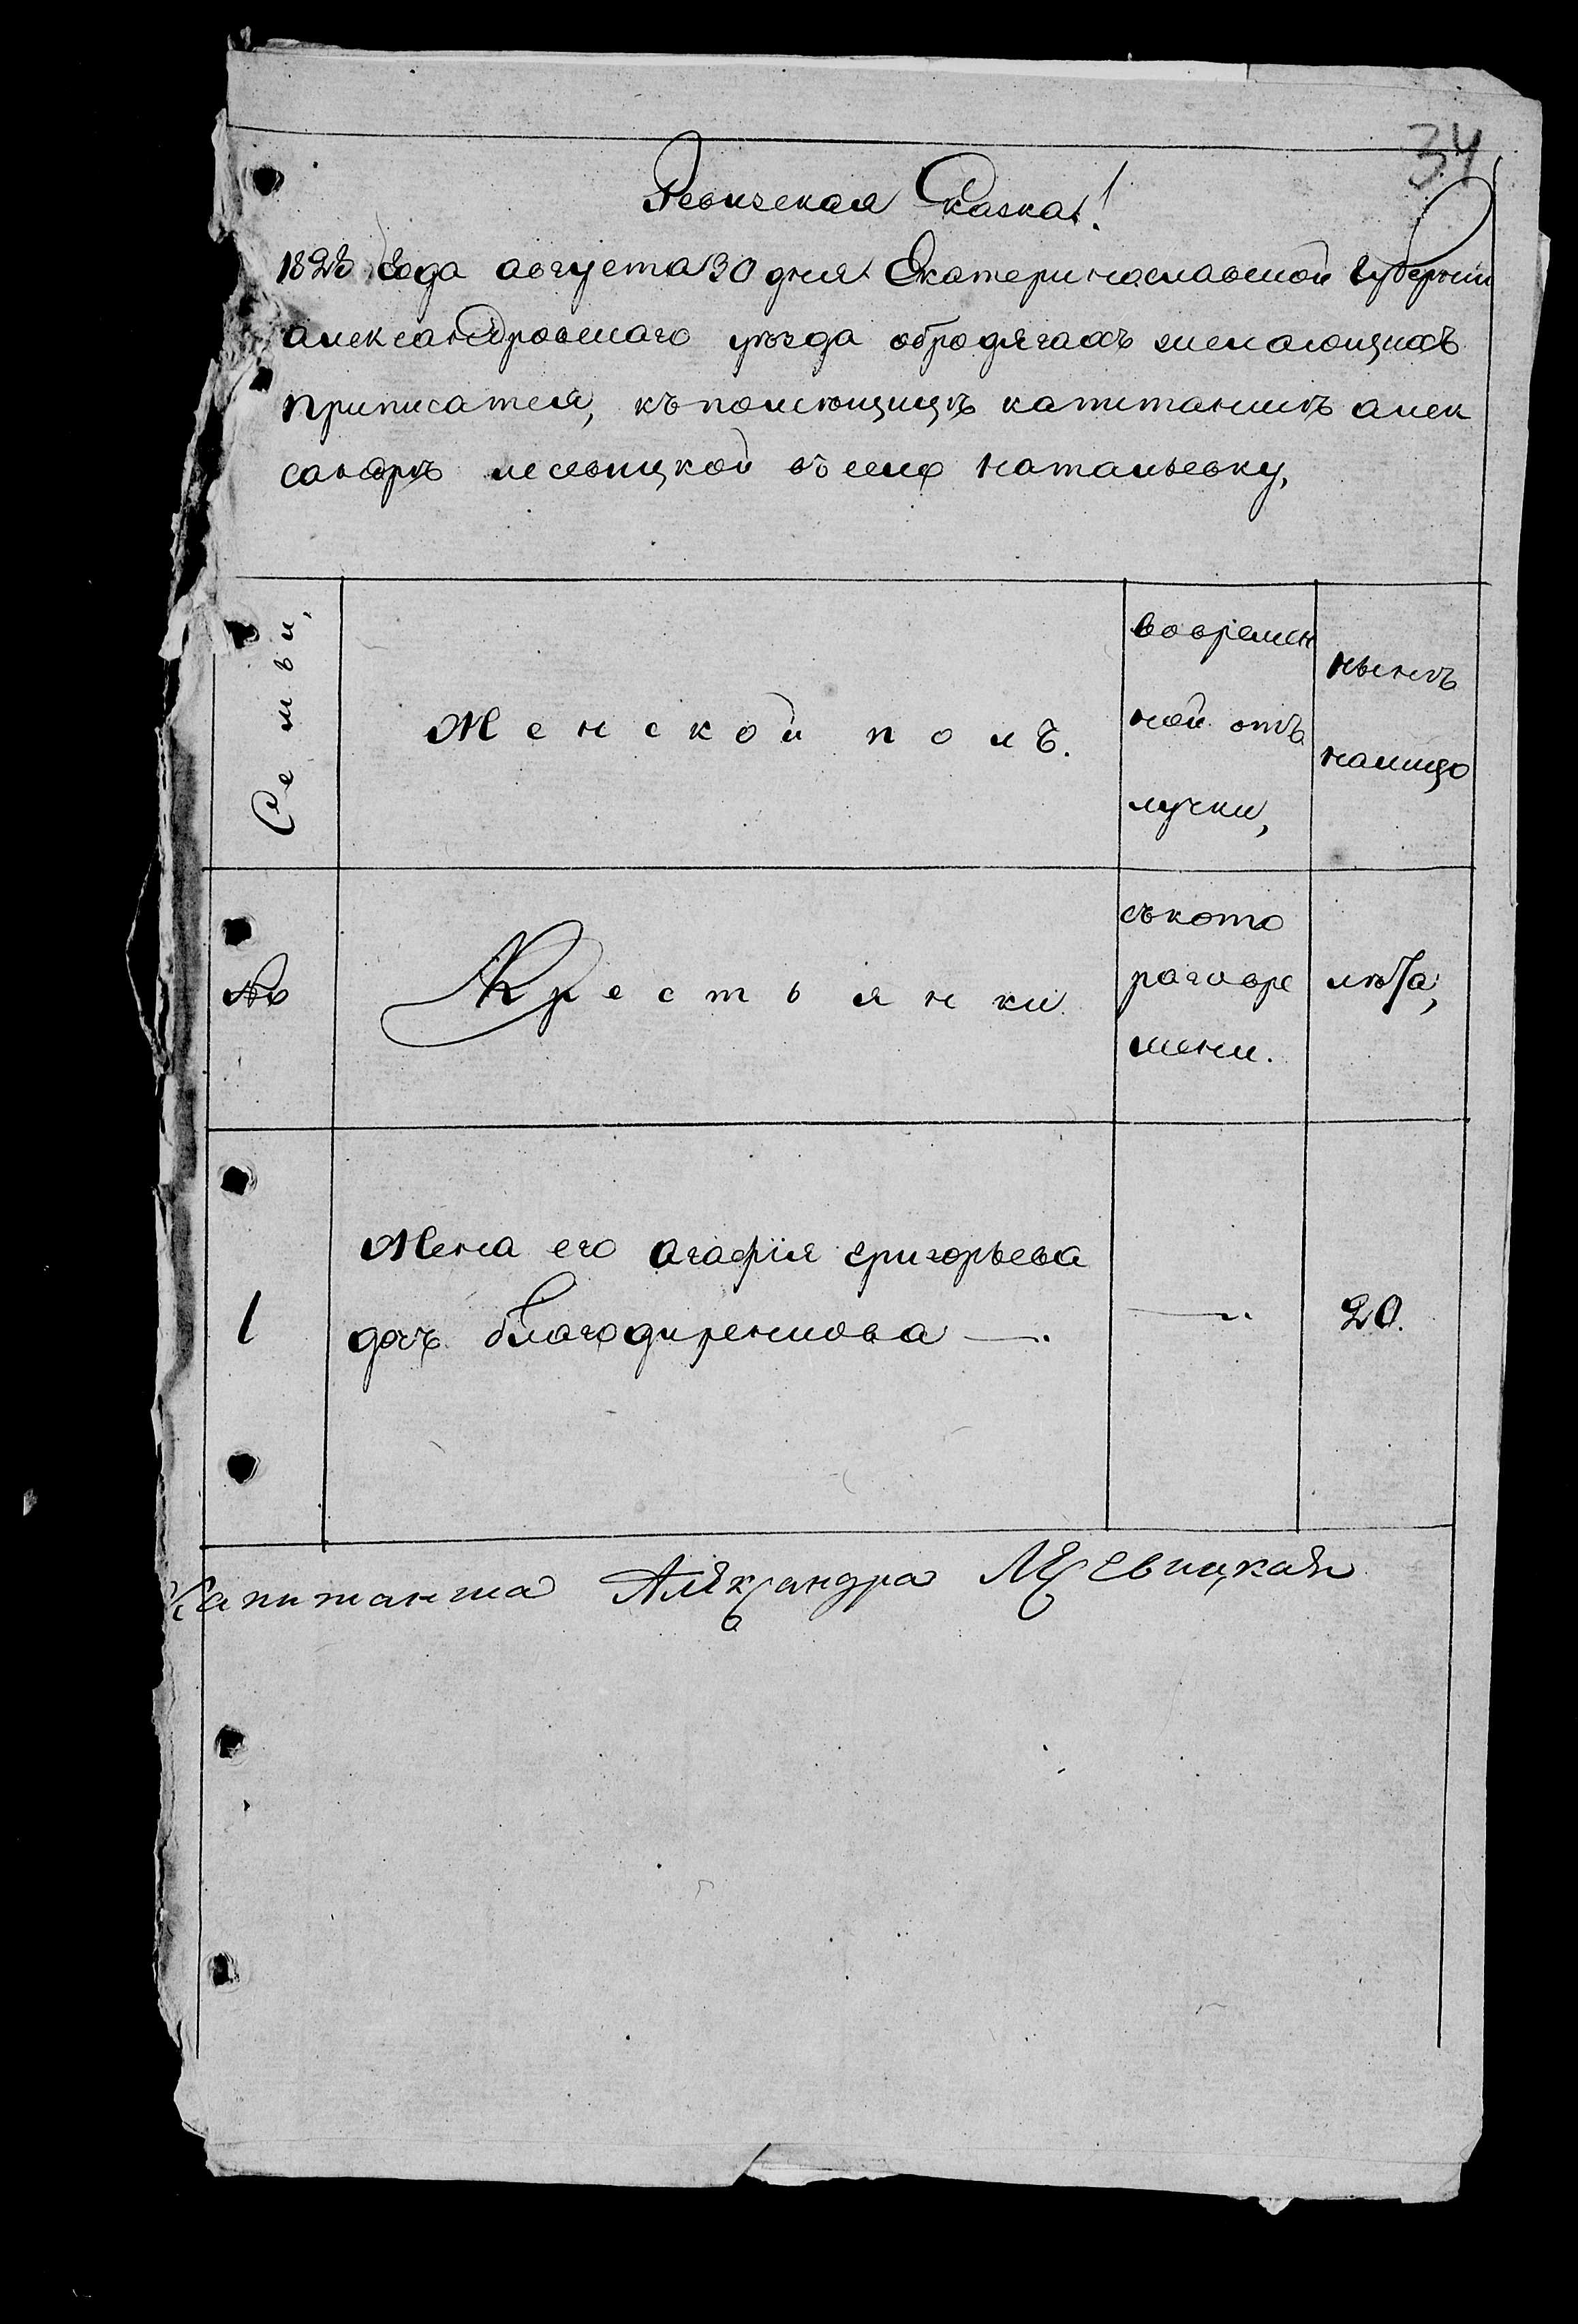 34
Ревизская Сказка!
182 года августа 30 дня Екатеринославской Губернии
александровскаго уѣзда обродягахъ желающихъ
приписатся, къ помѣщицѣ капитаншѣ алек
сандрѣ лесевицкой въ село натальевку,
Семьи,
Женской полъ.
вовремен
ной отъ
лучки,
нынѣ
налицо
№
Крестьянки
съкото
рагивре
мени.
лѣта,
1
Жена его агафiя григорьева
дочь
20.
Капитанша Александра Лесевицкая